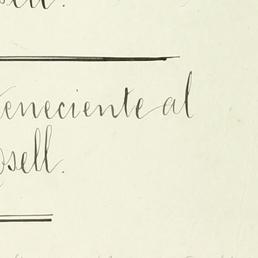 sell.
teneciente al
osell.